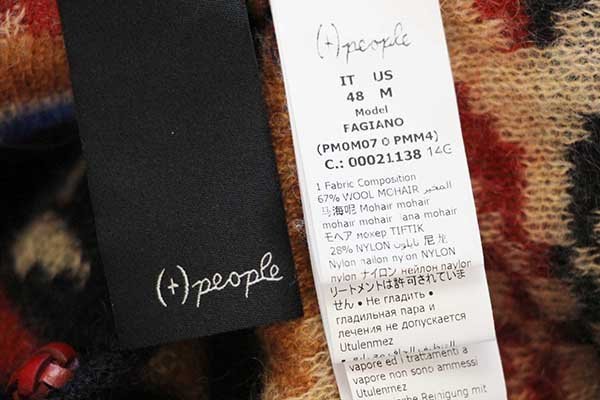 (+)people
(+)people
IT US
48 M
Model
FAGIANO
(PM0M07 0 PMM4)
C.: 00021138 14G
1 Fabric Composition
67% WOOL MOHAIR المخير
马海呢 Mohair mohair
mohair mohair lana mohair
モヘア мохер TIFTIK
28% NYLON نايلون 尼龙
Nylon nailon nylon NYLON
nylon ナイロン нейлон naylon
リートメントは許可されていま
せん • Не гладить •
гладильная пара и
лечения не допускается
Utulenmez
vapore ed i trattamenti a
vapore non sono ammessi
Utulenmez
Reinigung mit